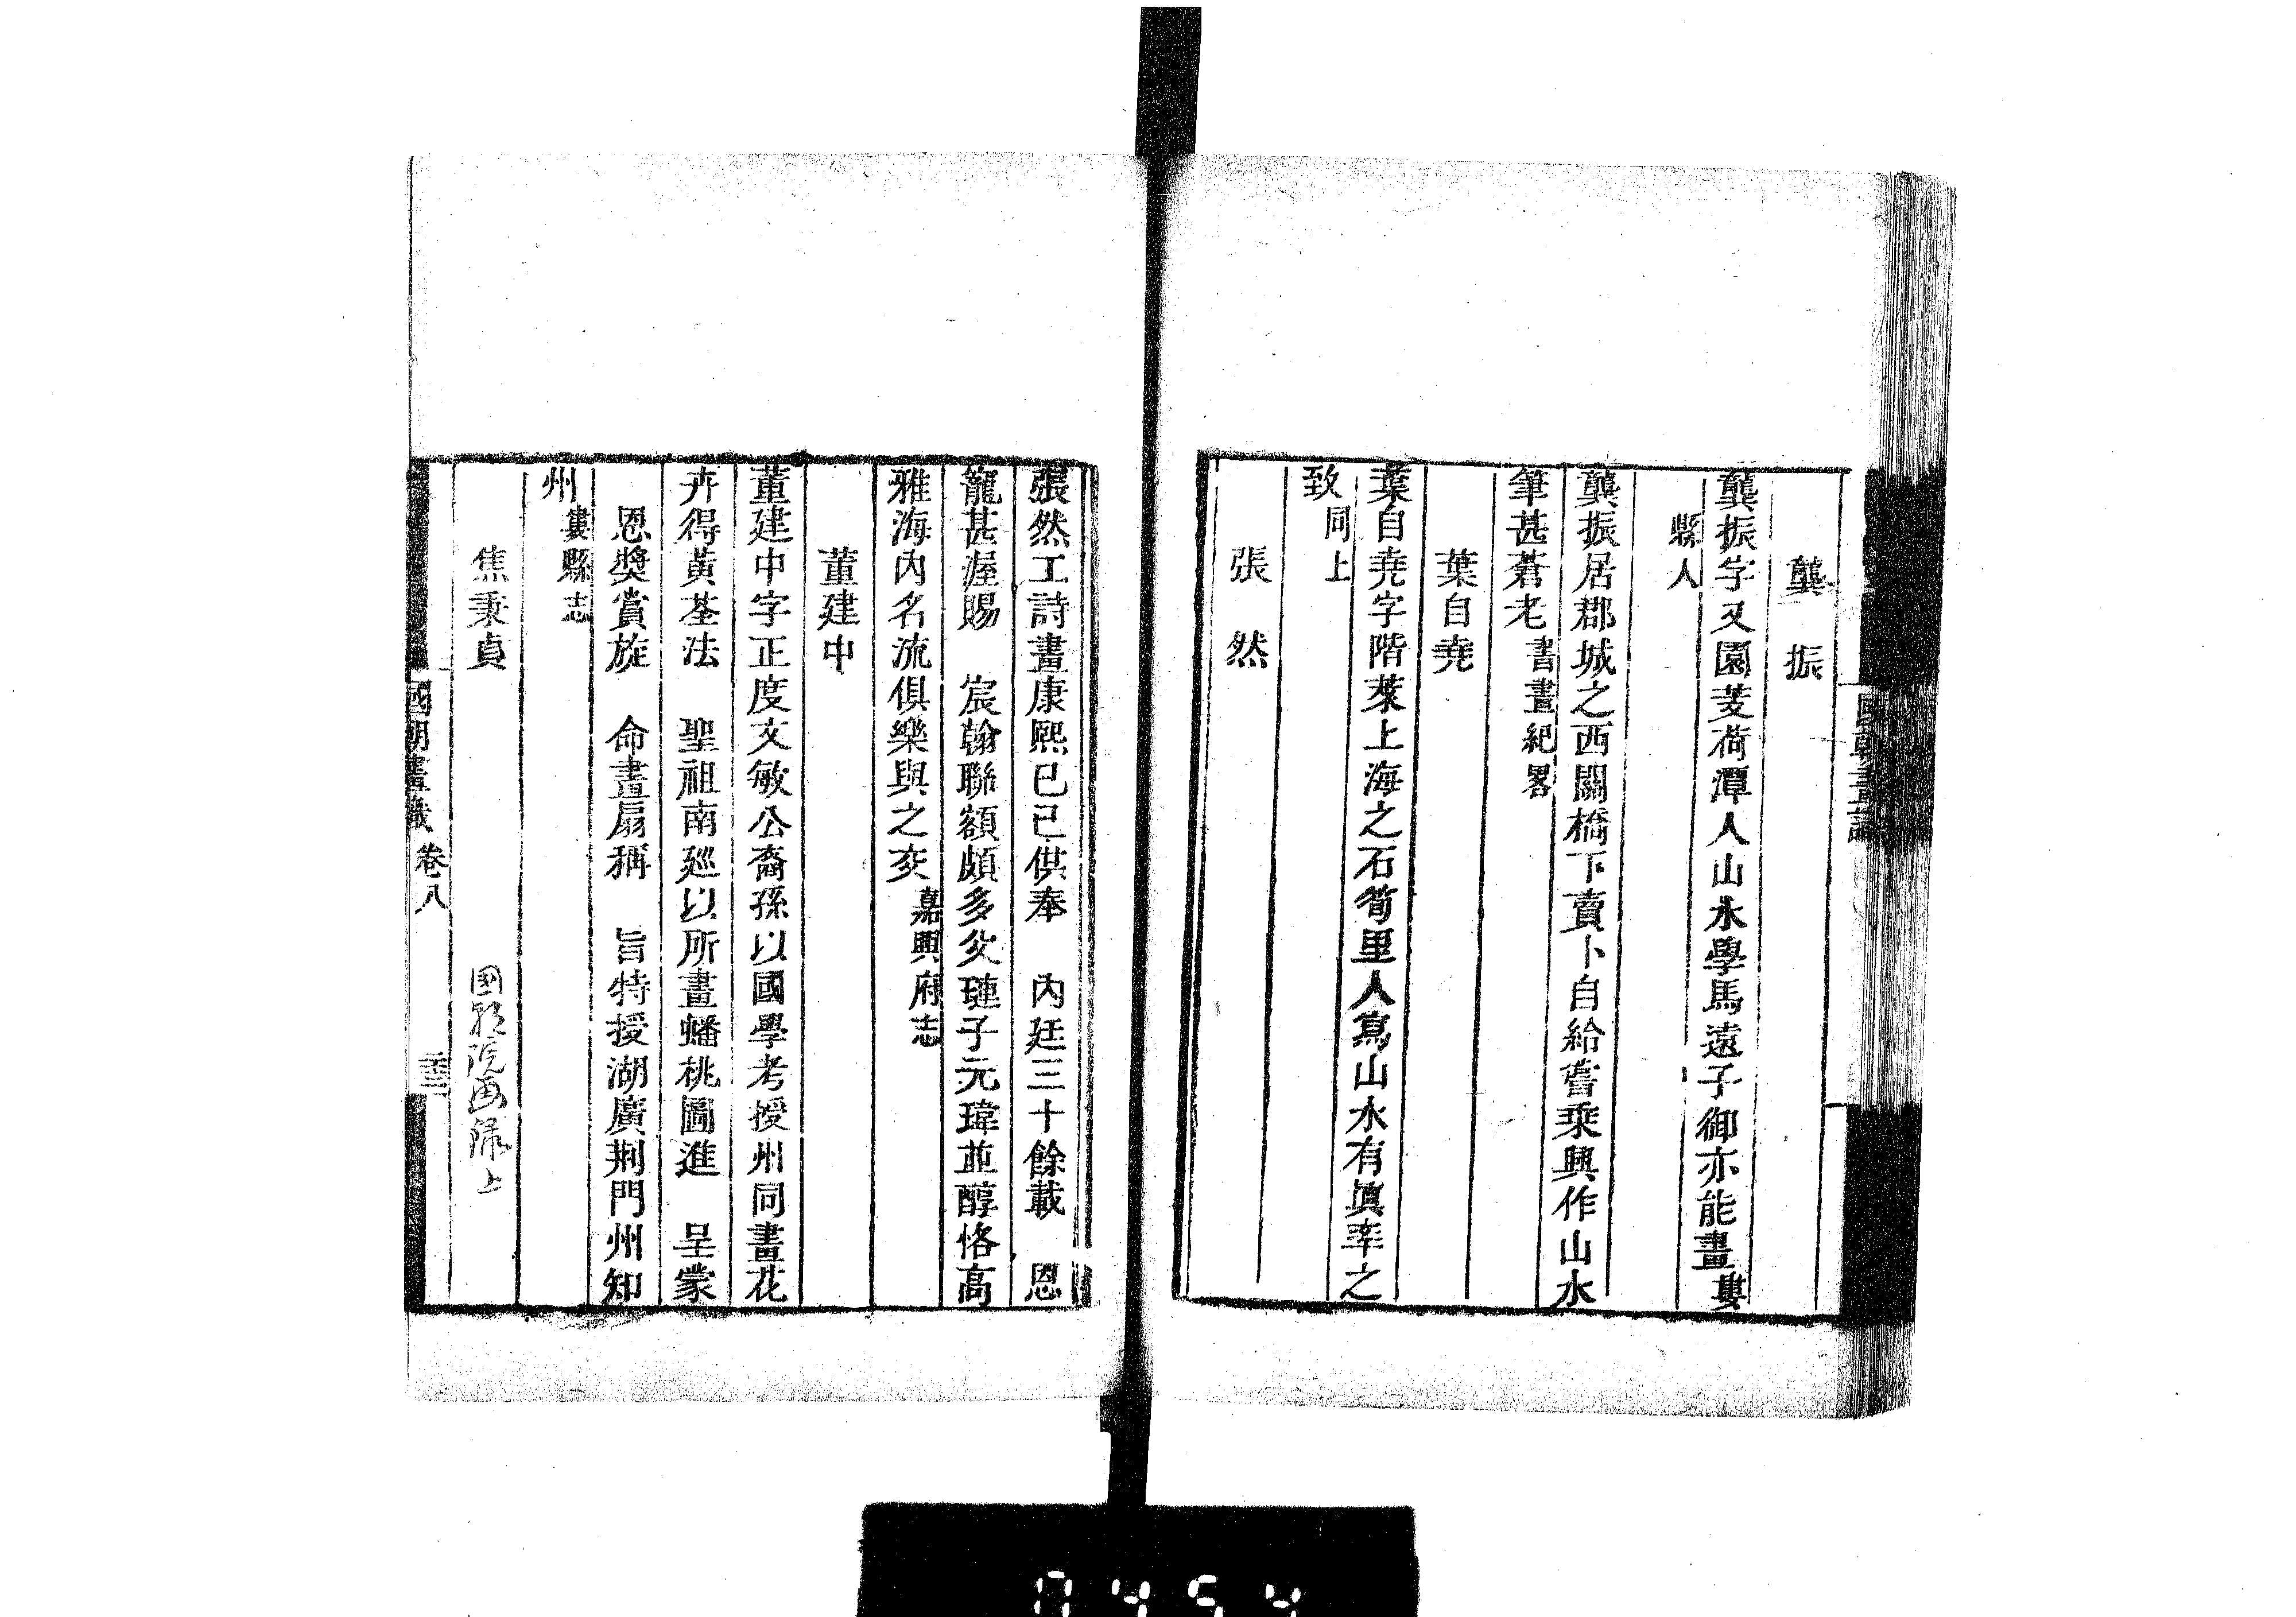 國朝畫識
龔　振
龔振字又園芰荷潭人山水學馬遠子御亦能畫婁
縣人
龔振居郡城之西關橋下賣卜自給嘗乘興作山水
筆甚蒼老書畫紀畧
葉自堯
葉自堯字階萊上海之石筍里人寫山水有眞率之
致同上
張　然
張然工詩畫康熙已已供奉　內廷三十餘載　恩
寵甚渥賜　宸翰聯額頗多父璉子元瑋並醇恪高
雅海內名流俱樂與之交嘉興府志
董建中
董建中字正度文敏公裔孫以國學考授州同畫花
卉得黃荃法　聖祖南廵以所畫蟠桃圖進　呈蒙
恩獎賞旋　命畫扇稱　旨特授湖廣荆門州知
州婁縣志
焦秉貞　国朝院画录上
國朝畫識　卷八